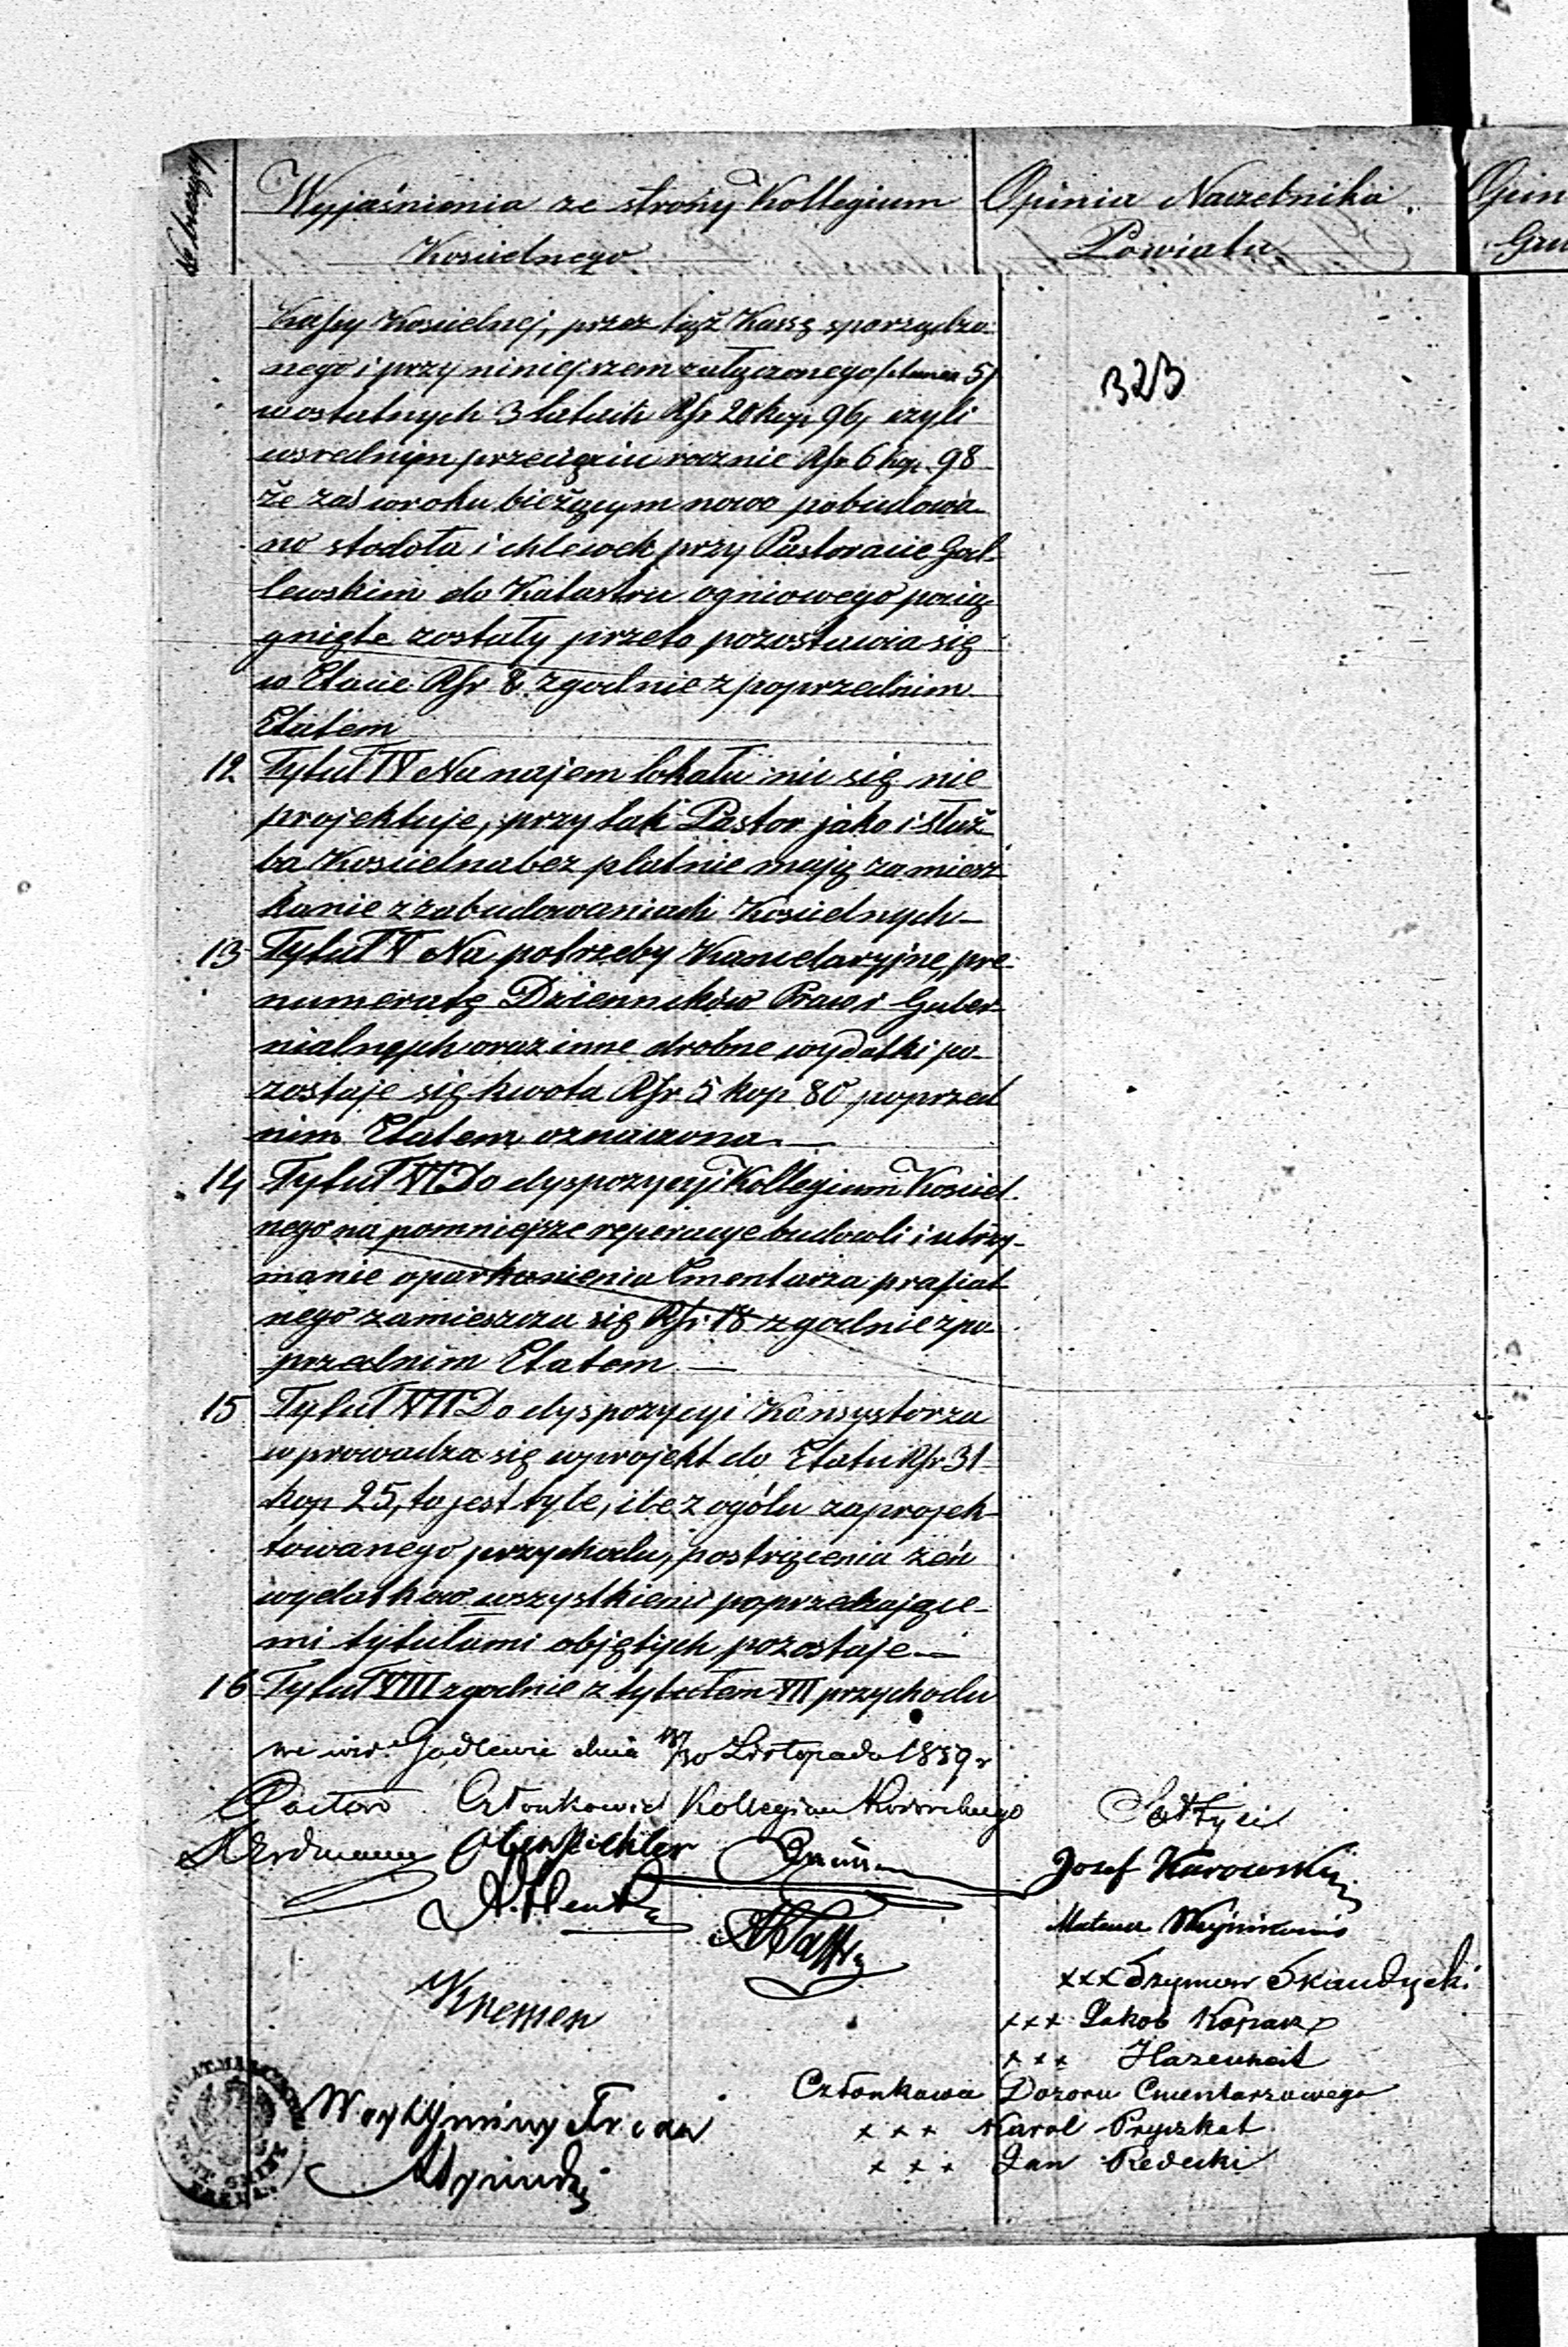 Wyjaśnienia ze strony Kollegium
Kościelnego
Opinia Naczelnika
Powiatu
Kassy Kościelnej, przez tąż Kassę sporządzo
nego i przy niniejszem załączonego 5/
w ostatnych 3 latach Rsr 20 kop 96, czyli
w srednim przecięciu rocznie Rsr 6 kop. 98
że zaś w roku bieżącym nowo pobudowa
no stodoła i chlewek przy Pastoracie God-
lewskim do Katastru ogniowego pocią
gnięte zostały przeto pozostawia się
w Etacie Rsr 8 zgodnie z poprzednim
Etatem
12 Tytuł IV Na najem lokalu nic się nie
projektuje, przy tak Pastor jako i służ
ba Kościelna bez płatnie mają zamiesz
kanie z zabudowaniach Kościelnych —
13 Tytuł V Na potrzeby Kancelaryjne, pre
numeratę Dzienników Praw i Guber
nialnych oraz inne drobne wydatki po
zostaje się kwota Rsr 5 kop 80, poprzed
nim Etatem oznaczona. —
14 Tytuł VI Do dyspozycyi Kollegium Kościel
nego na pomniejsze reperacye budowli i utrzy-
manie oparkanienia Cmentarza parafial
nego zamieszcza się Rsr 18 zgodnie z po
przednim Etatem —
15 Tytuł VII Do dyspozycyi Konsystorza
wprowadza się w projekt do Etatu Rsr 31
kop 25, to jest tyle, ile z ogółu zaprojek
towanego przychodu, po strąceniu zeń
wydatków wszystkiemi poprzedzające-
mi tytułami objętych, pozostaje —
16 Tytuł VIII zgodnie z tytułem VII przychodu
we wsi Godlewie dnia 18/30 Listopada 1859 r
Pastor Członkowie Kollegium Kościelnego
Sołtysi
Erdmann
Józef Karowski
xxx Szymon Skaudzycki
xxx Jakob
xxx
Członkowie Dozoru Cmentarzowego
xxx Karol Pryszkat
xxx Jan Redecki
Kremer
323